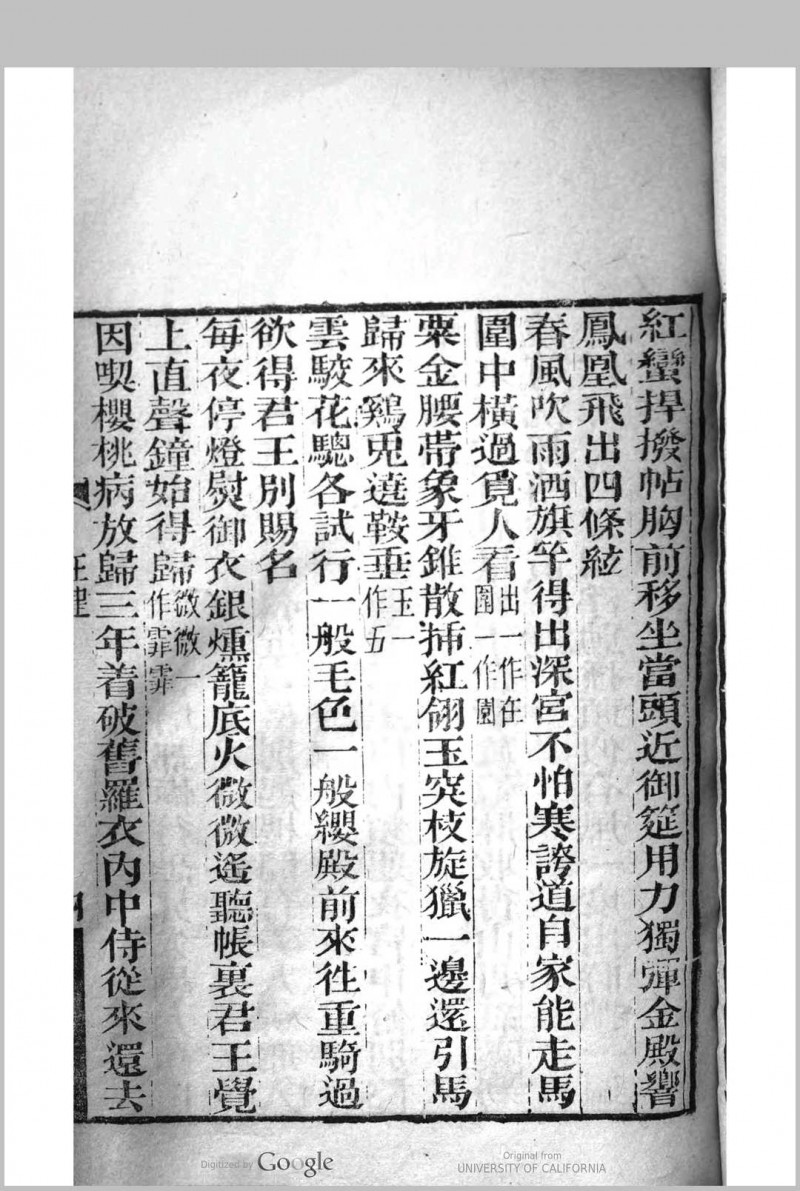 紅蠻捍撥帖胸前移坐當頭近御筵用力獨彈金殿響
鳳凰飛出四條絃
春風吹雨洒旗竿得出深宮不怕寒誇道自家能走馬
圍中橫過覓人看出一作在圍一作園
粟金腰帶象牙錐散揷紅翎玉突枝旋獵一邊還引馬
歸來鷄兎遶鞍垂玉一作五
雲駮花驄各試行一般毛色一般纓殿前來往重騎過
欲得君王別賜名
每夜停燈熨御衣銀燻籠底火微微遙聽帳裏君王覺
上直聲鐘始得歸微微一作霏霏
因喫櫻桃病放歸三年着破舊羅衣內中侍從來還去
王建
Digitized by Google
Original from
UNIVERSITY OF CALIFORNIA